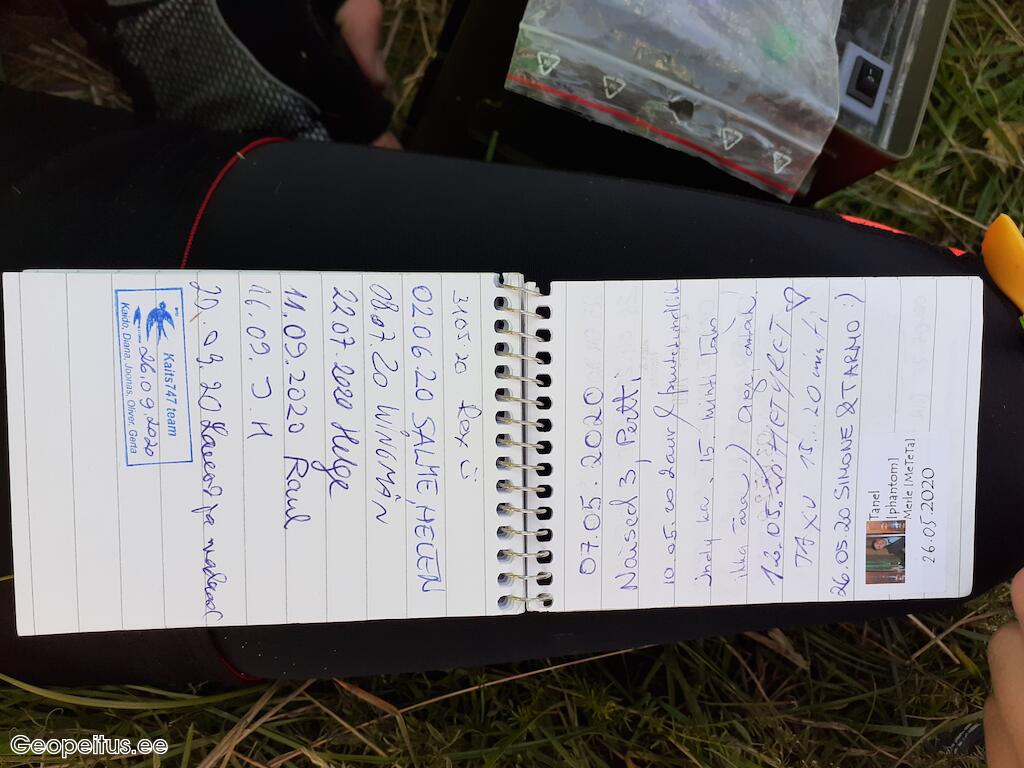 07.05.2020
Naised 3, Pretti
10.05.20 Laur & putukmetlik
Indy ka. 15. minti Lõvo
ikka ära :)
12.05. HETYRET ♡
TAXU 15...20 min
26.05.20 SIMONE & TARMO :)
Tanel
[phantom]
Merle [MeTeTa]
26.05.2020
31.05.20 Roy
02.06.20 SALME, HELEN
08.07.20 WINGMÄN
22.07.2020 Helge
11.09.2020 Raul
16.09. J. H
20.09.20 ja
Kaits747 team
26.09.2020
Kaido, Diana, Joonas, Oliver, Gerta
Geopeitus.ee